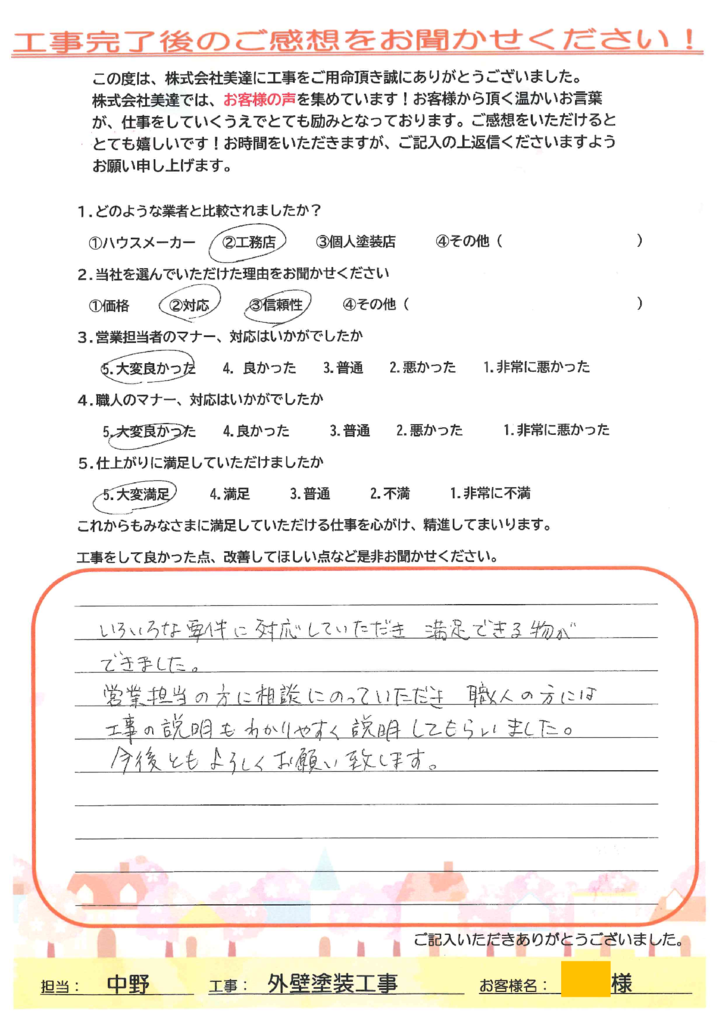 工事完了後のご感想をお聞かせください！
この度は、株式会社美達に工事をご用命頂き誠にありがとうございました。
株式会社美達では、お客様の声を集めています！お客様から頂く温かいお言葉
が、仕事をしていくうえでとても励みとなっております。ご感想をいただけると
とても嬉しいです！お時間をいただきますが、ご記入の上返信くださいますよう
お願い申し上げます。
１.どのような業者と比較されましたか？
①ハウスメーカー ②工務店 ③個人塗装店 ④その他（ ）
２.当社を選んでいただけた理由をお聞かせください
①価格 ②対応 ③信頼性 ④その他（ ）
３.営業担当者のマナー、対応はいかがでしたか
5.大変良かった 4. 良かった 3.普通 2.悪かった 1.非常に悪かった
４.職人のマナー、対応はいかがでしたか
5.大変良かった 4.良かった 3.普通 2.悪かった 1.非常に悪かった
５.仕上がりに満足していただけましたか
5.大変満足 4.満足 3.普通 2.不満 1.非常に不満
これからもみなさまに満足していただける仕事を心がけ、精進してまいります。
工事をして良かった点、改善してほしい点など是非お聞かせください。
いろいろな要件に対応していただき 満足できる物が
できました。
営業担当の方に相談にのっていただき 職人の方には
工事の説明もわかりやすく説明してもらいました。
今後ともよろしくお願い致します。
ご記入いただきありがとうございました。
担当： 中野 工事： 外壁塗装工事 お客様名： 様